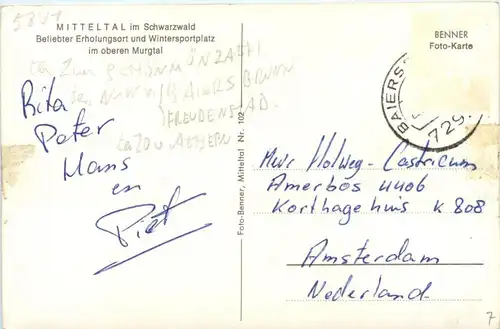 5841
MITTELTAL im Schwarzwald
Beliebter Erholungsort und Wintersportplatz
im oberen Murgtal
BENNER
Foto-Karte
BAIERS
729
FREUDENSTAD.
Rita
Peter
Hans
en
Piet
Foto-Benner, Mitteltal Nr. 102
Mevr Holweg - Castricum
Amerbos 4406
Korthagehuis K 808
Amsterdam
Nederland
7